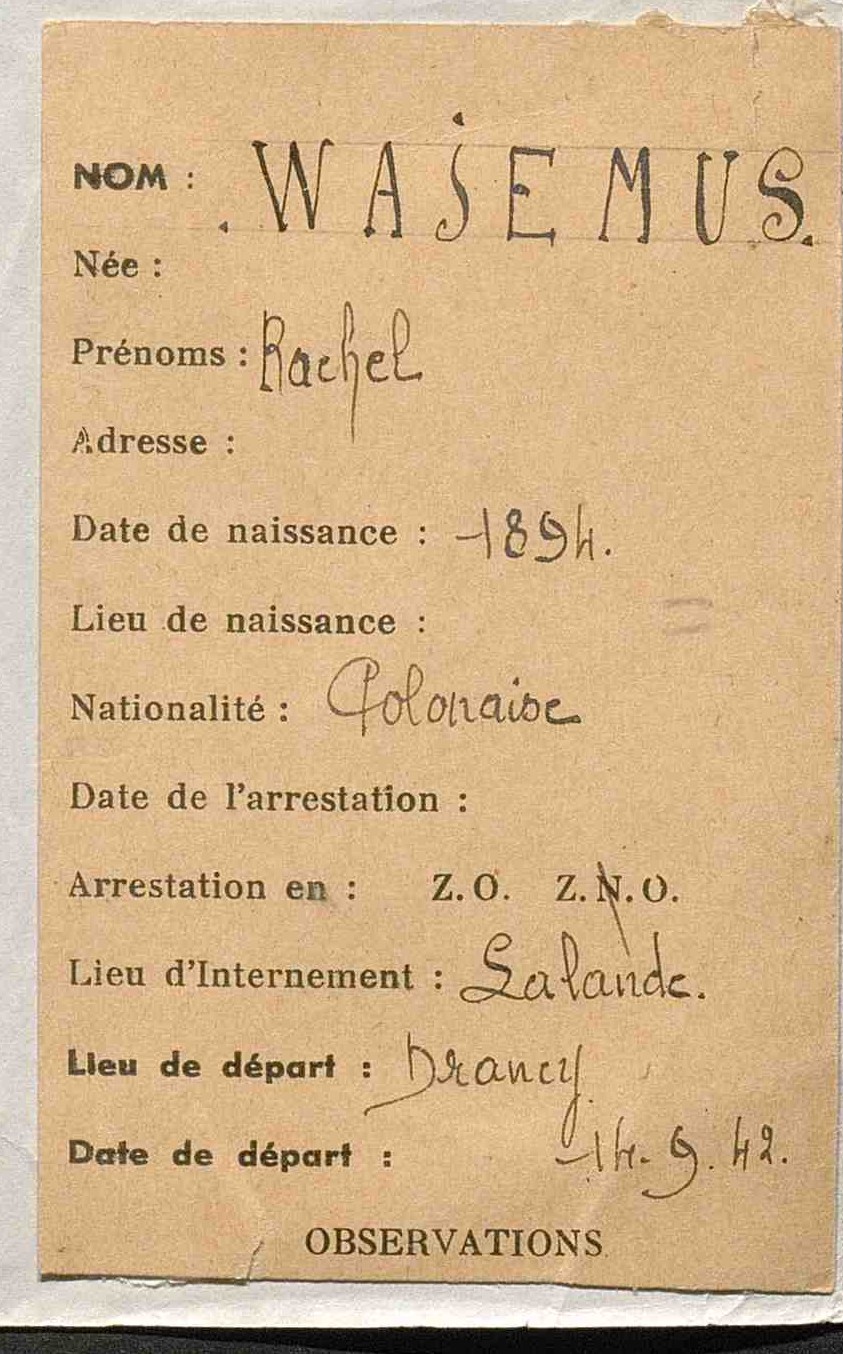 NOM : WAJEMUS.
Née :
Prénoms : Rachel
Adresse :
Date de naissance : 1894.
Lieu de naissance :
Nationalité : Polonaise
Date de l'arrestation :
Arrestation en : Z.O. Z.N.O.
Lieu d'Internement : Lalande.
Lieu de départ : Drancy
Date de départ : 14. 9. 42.
OBSERVATIONS